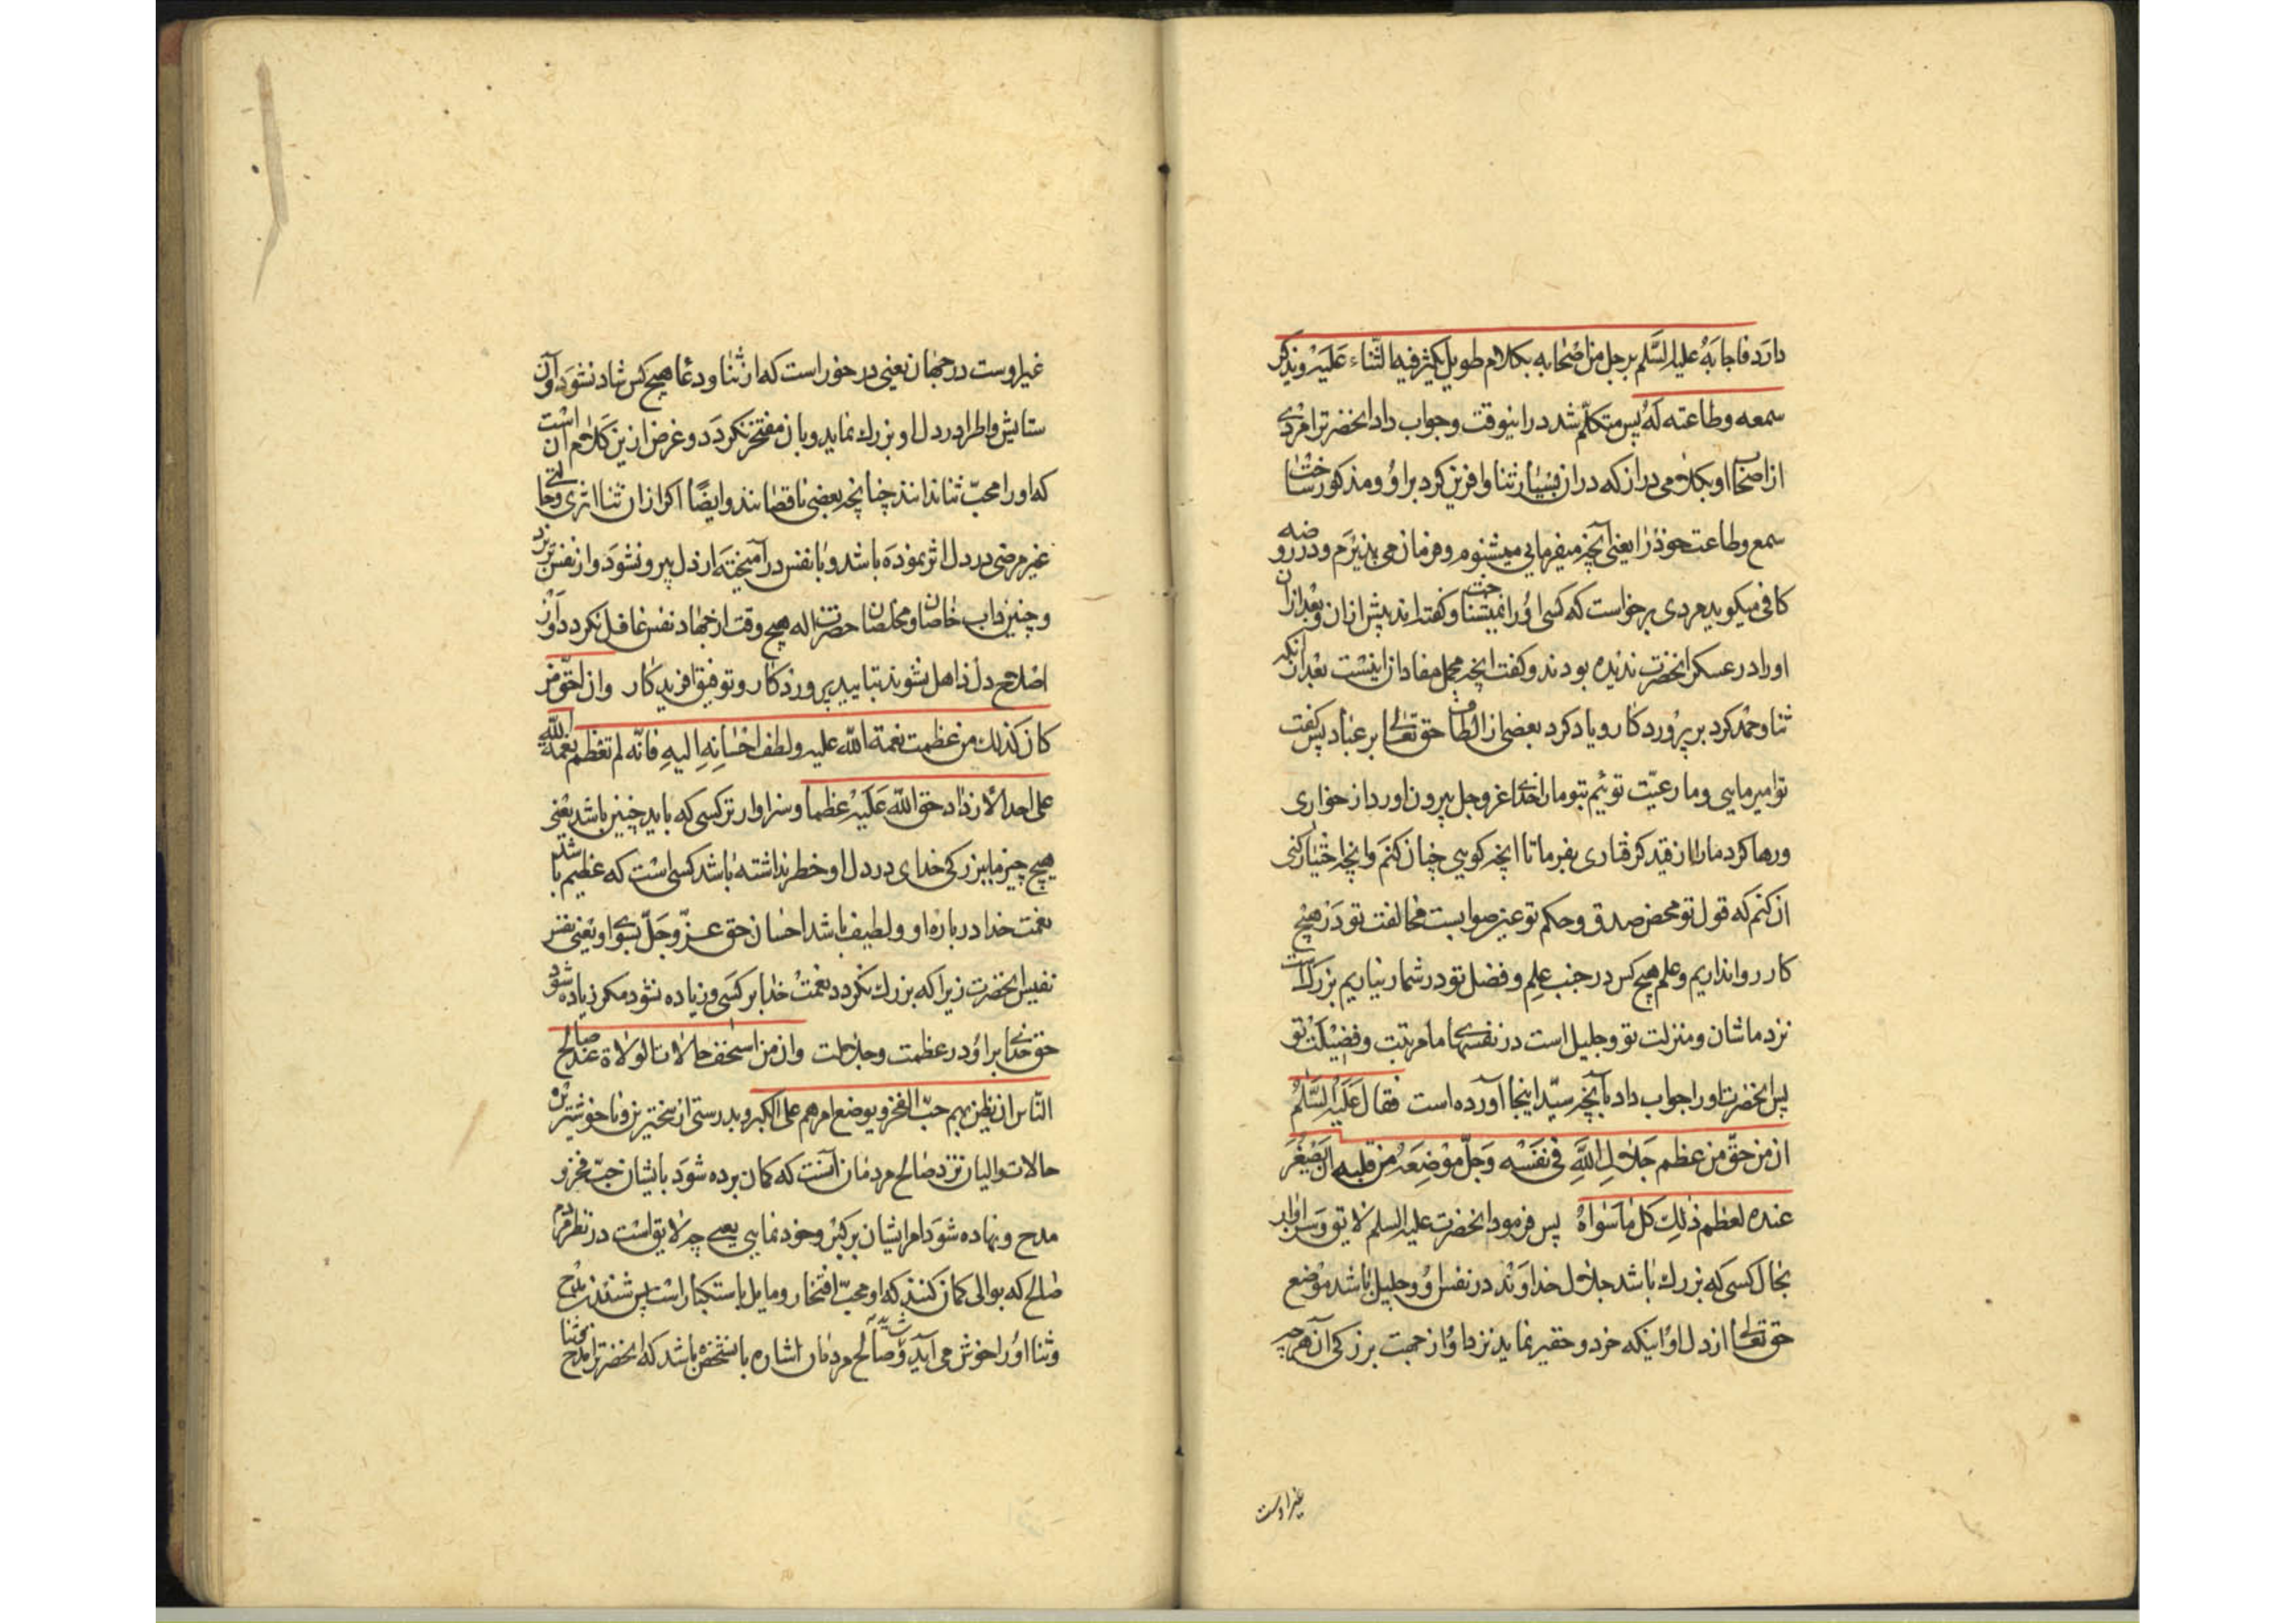 دارد فاجابهُ علیه السَّلم برجل من اصحابه بکلام طویل یکثر فیه الثّناء علَیْه ویذکر
سمعه وطاعته لَهُ پس متکلّم شد درانیوقت وجواب داد انحضرترا مردی
از اصحاب او بکلامی دراز که دران بسیار ثنا وافرین کرد بر اوُ ومذکور ساخت
سمع وطاعت خود را یعنی آنچه میفرمایی میشنوم وفرمان می پذیرم ودر روضه
کافی میکوید مردی برخواست که کسی اوُ را نمیشناخت وکفته اند پیش ازان وبعد ازان
او را در عسکر انحضرت ندیده بودند وکفت انچه مجمل مفاد ان اینست بعد ازانکه
ثنا وحمد کرد بر پروردکار ویاد کرد بعضی از الطاف حق تعالی بر عباد پس کفت
تو امیر مایی وما رعیّت توئیم بتو ما را خدای عز وجل بیرون اورد از خواری
ورها کرد ما را از قید کرفتاری بفرما تا انچه کویی چنان کنم وانچه اختیار کنی
ان کنم که قول تو محض صدق وحکم تو عین صوابست مخالفت تو در هیچ
کار روا نداریم وعلم هیچ کس در جنب علم وفضل تو در شمار نیاریم بزرک است
نزد ما شان ومنزلت تو وجلیل است در نفسهای ما مرتبت وفضیلت تو
پس انحضرت او را جواب داد بآنچه سیّد اینجا آورده است فقال عَلَیْه السَّلمُ
ان من حقّ من عظم جَلالِ اللّٰهِ فی نَفَسْه وَجلّ مَوْضِعَهُ من قلبه ان یَصْغُرَ
عنده لعظم ذٰلِک کل مٰا سَوٰاهُ پس فرمود انحضرت علیه السلم لایق وسزاوار
بحال کسی که بزرک باشد جلال خداوند در نفس اوُ وجلیل باشد موضع
حق تعالی از دل اوُ اینکه خرد وحقیر نماید نزد اوُ از جهت بزرکی آن هر چه
غیر اوست
غیر اوست در جهان یعنی در خور است که از ثنا ودعا هیچ کس شاد نشود وآن
ستایش واطرا در دل او بزرک نماید وبان مفتخر نکردد وغرض ازین کلام ان است
که او را محبّ ثنا ندانند چنانچه بعضی ناقصانند وایضًا اکر ازان ثنا اثری وحالتی
غیر مرضی در دل اثر نموده باشد وبا نفس در آمیخته از دل بیرون شود واز نفس برد
وچنین داب خاصان ومخلصان حضرت اله هیچ وقت از جهاد نفس غافل نکردد واز
اصلاح دل ذاهل نشوند بتایید پروردکار وتوفیق افریدکار وان احقّ من
کان کذلک من عظمت نعمة اللّٰه علیه ولطف احْسٰانِهِ الیهِ فَانّه لم تعظم نعمة اللّٰه
علی احد الّا زٰاد حق اللّٰه عَلَیْه عظما وسزاوارتر کسی که باید چنین باشد یعنی
هیچ چیز با بزرکی خدای در دل او خطر نداشته باشد کسی است که عظیم باشد
نعمت خدا درباره او ولطیف باشد احسان حق عزّ وجَلّ بسوی او یعنی نفس
نفیس انحضرت زیرا که بزرک نکردد نعمت خدا بر کسَی وزیاده نشود مکر زیاده شود
حق خدای بر اوُ در عظمت وجلالت وان من اسخف حالات الولاة عند صالح
النّاس ان یظن بهم حبّ الفخر ویوضع امرهم علی الکبر وبدرستی از سخیف‌ترین وناخوشترین
حالات والیان نزد صالح مردمان آنست که کمان برده شود بایشان حبّ فخر و
مدح ونهاده شوَد امر ایشان بر کبر وخود نمایی یعنی چه لایق است در نظر مردم
صالح که بوالی کمان کنند که او محبّ افتخار ومایل باستکبار است پس شنیدن مدح
وثنا اوُ را خوش می آید وشاید صالح مردمان اشاره بانشخص باشد که انحضرترا مدح وثنا